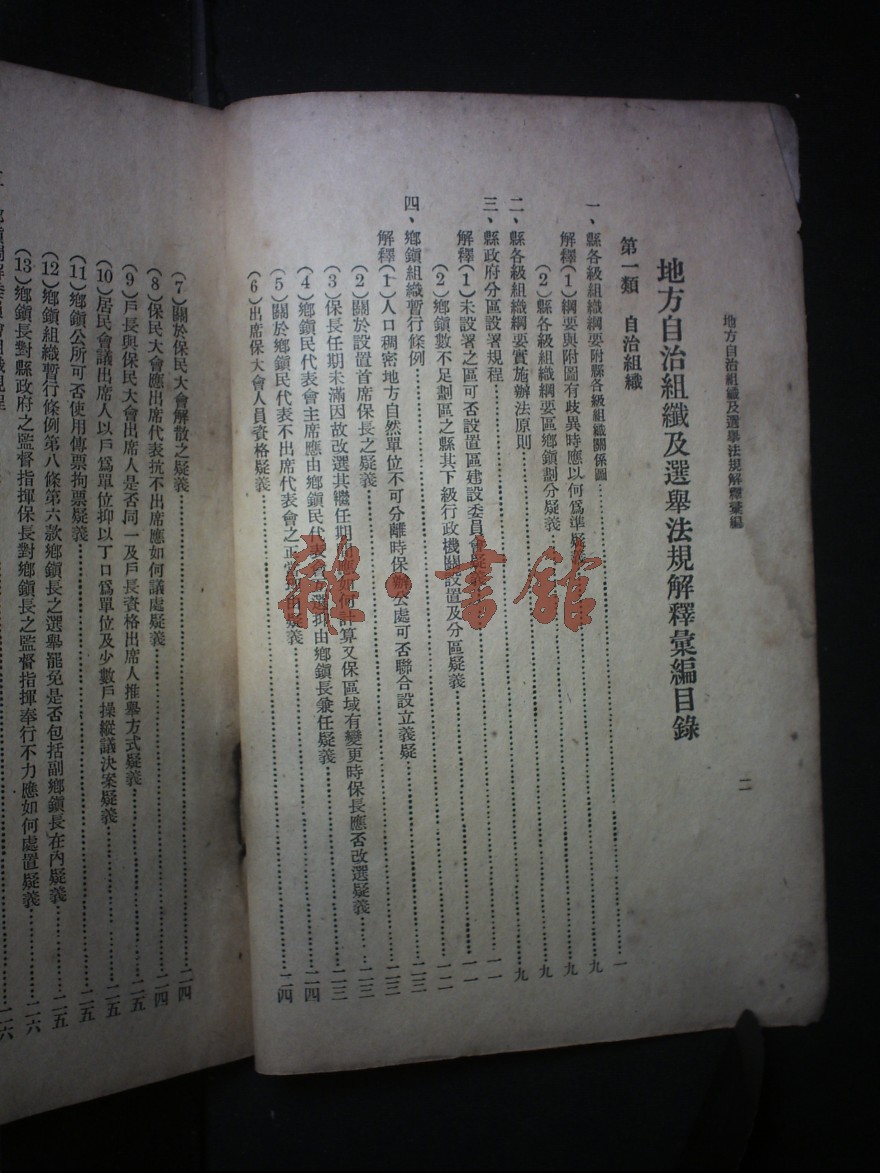 地方自治組織及選舉法規解釋彙編
二
地方自治組織及選舉法規解釋彙編目錄
第一類 自治組織
一、縣各級組織綱要附縣各級組織關係圖………一
解釋(1)綱要與附圖有歧異時應以何爲準疑………九
(2)縣各級組織綱要區鄉鎭劃分疑義………九
二、縣各級組織綱要實施辦法原則………九
三、縣政府分區設署規程………一一
解釋(1)未設署之區可否設置區建設委員會疑義………一一
(2)鄉鎭數不足劃區之縣其下級行政機關設置及分區疑義………一二
四、鄉鎭組織暫行條例………二三
解釋(1)人口稠密地方自然單位不可分離時保辦公處可否聯合設立義疑………二三
(2)關於設置首席保長之疑義………二三
(3)保長任期未滿因故改選其繼任期間應如何計算又保區域有變更時保長應否改選疑義……二三
(4)鄉鎭民代表會主席應由鄉鎭民代表會互選抑由鄉鎭長兼任疑義………二四
(5)關於鄉鎭民代表不出席代表會之正當理由疑義
(6)出席保大會人員資格疑義………二四
(7)關於保民大會解散之疑義………二四
(8)保民大會應出席代表抗不出席應如何議處疑義………二四
(9)戶長與保民大會出席人是否同一及戶長資格出席人推舉方式疑義………二五
(10)居民會議出席人以戶爲單位抑以丁口爲單位及少數戶操縱議決案疑義………二五
(11)鄉鎭公所可否使用傳票拘票疑義………二五
(12)鄉鎭組織暫行條例第八條第六款鄉鎭長之選舉罷免是否包括副鄉鎭長在內疑義………二五
(13)鄉鎭長對縣政府之監督指揮保長對鄉鎭長之監督指揮奉行不力應如何處置疑義………二六
二六
雜·書館